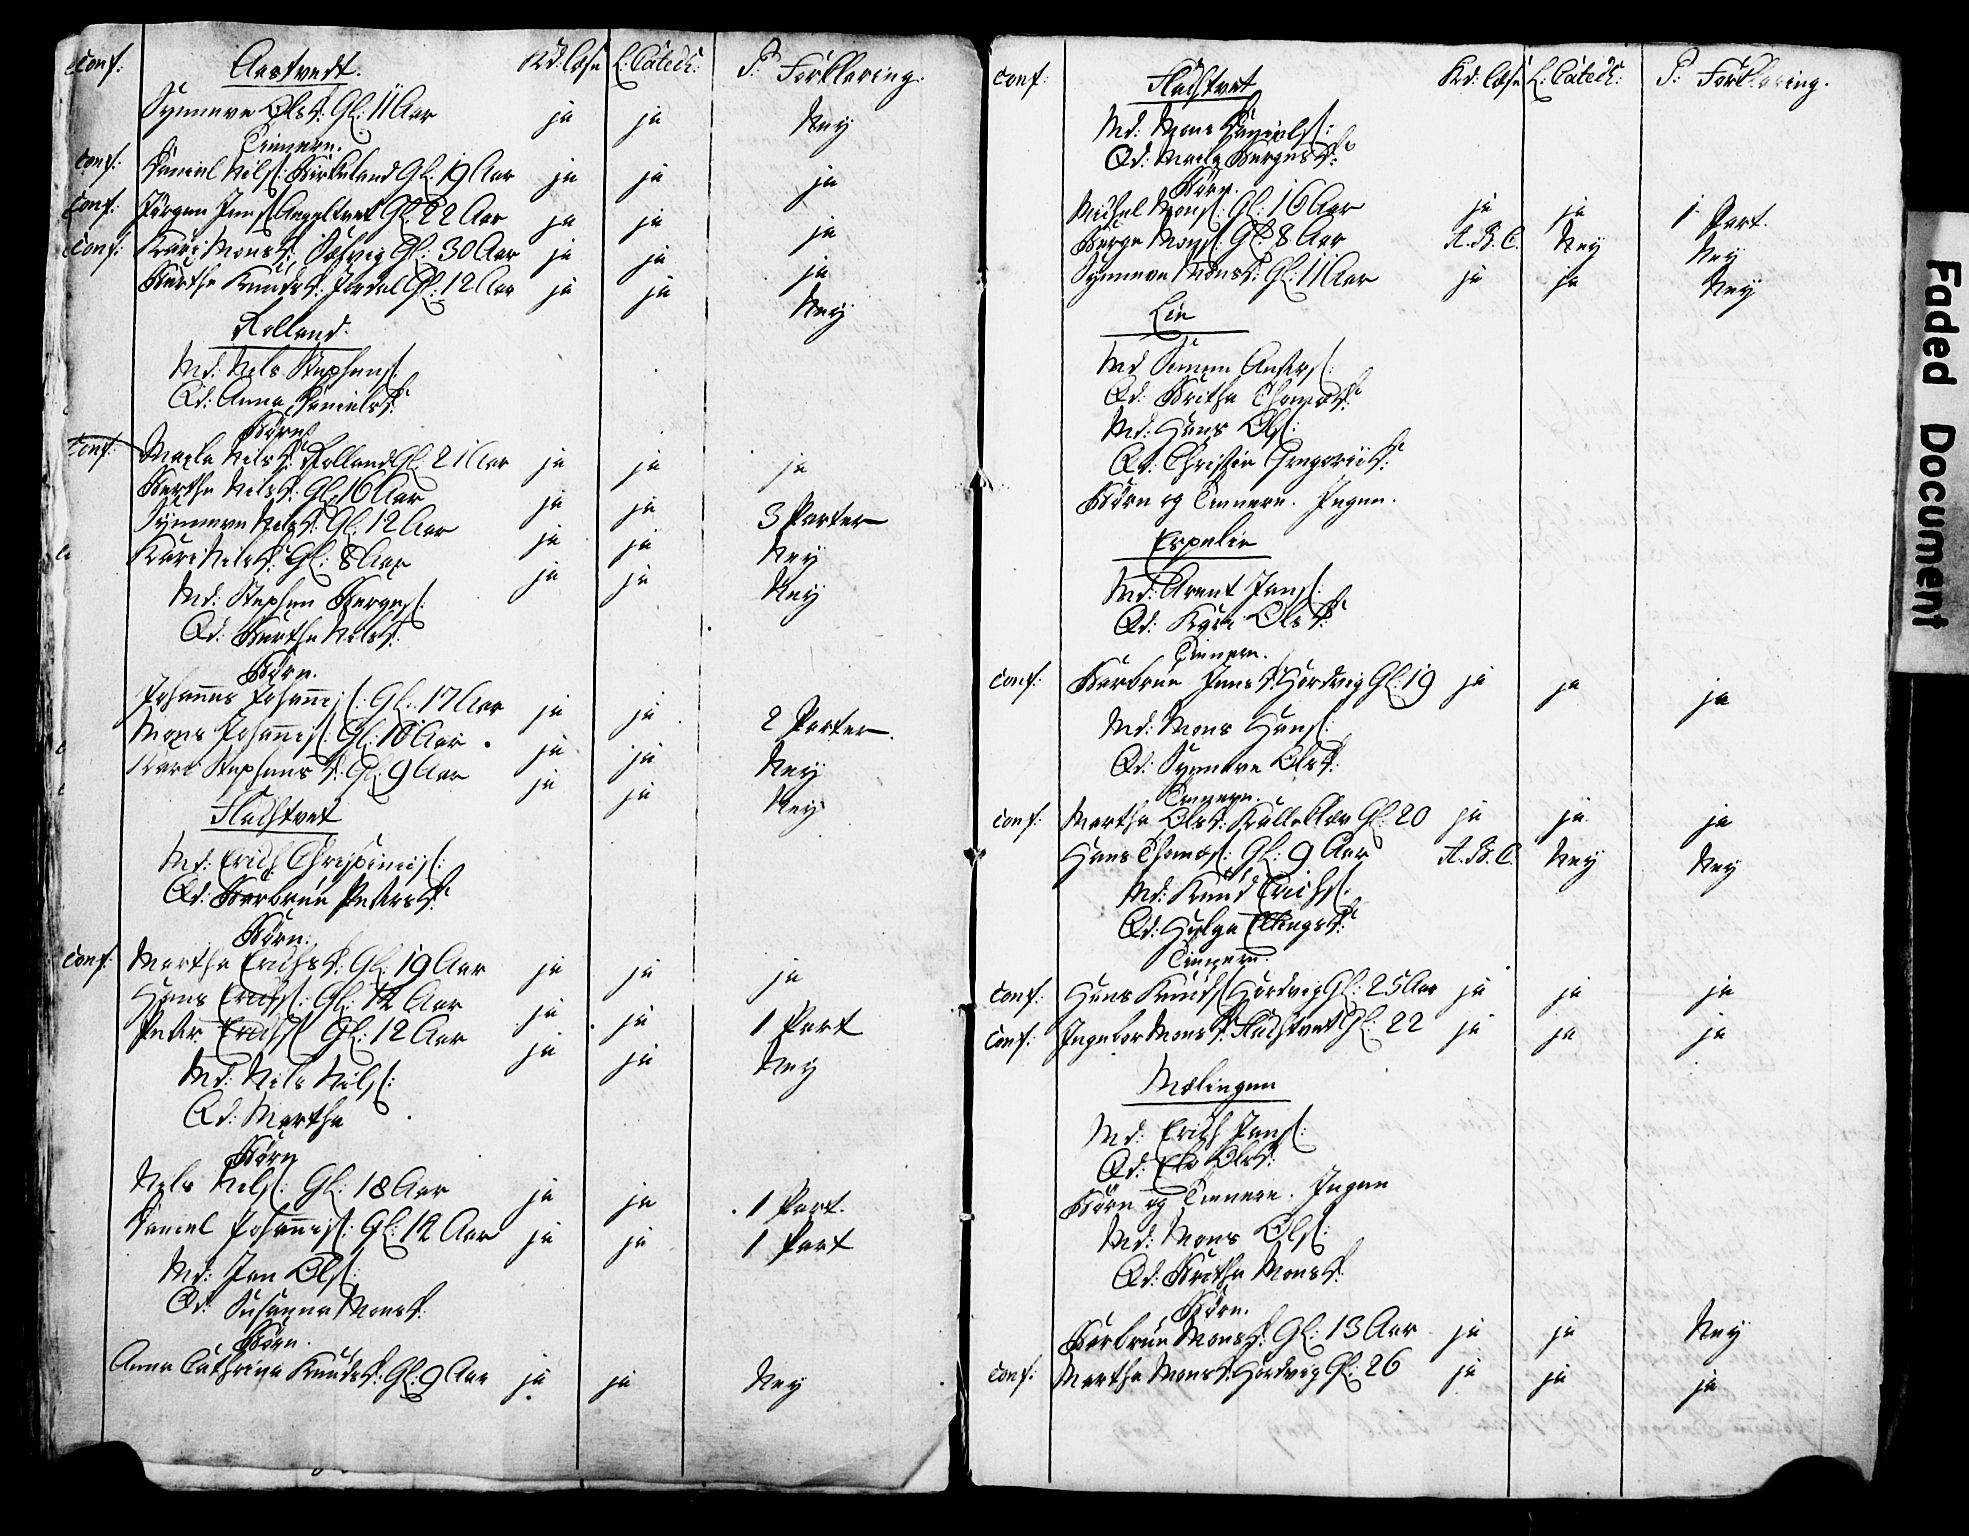 conf: Aastvedt. Kd: læse L: Catech: P: Forklaring.
Synneve Olsd: Gl: 11 Aar ja ja Ney
Tiennere.
conf: Daniel Nilss: Birkeland Gl: 19 Aar ja ja ja
conf: Jørgen Jens: Angeltvet Gl: 22 Aar ja ja ja
conf: Kari Monsd: Gl: 30 Aar ja ja ja
Berthe Knudsd: Jordal Gl: 12 Aar ja ja Ney
Rolland.
Md: Nels Stephens:
Qd: Anna Danielsd:
Børn
conf: Maela Nilsd: Rolland Gl: 21 Aar ja ja ja
Berthe Nelsd: Gl: 16 Aar ja ja 3 Parter
Synneve Nelsd: Gl: 12 Aar ja ja Ney
Kari Nelsd: Gl: 8 Aar ja ja Ney
Md: Stephen Børges:
Qd: Berthe Nelsd:
Børn.
Johannes Johannis: Gl: 17 Aar ja ja 2 Parter
Mons Johannis: Gl: 10 Aar ja ja Ney
Kari Stephensd: Gl: 9 Aar ja ja Ney
Flachtvet
Md: Erich Christians:
Qd: Barbrue Petersd:
Børn:
conf: Marthe Erichsd: Gl: 19 Aar ja ja ja
Hans Erichs: Gl: 14 Aar ja ja 1 Part
Peter Erichs: Gl: 12 Aar ja ja Ney
Md: Nils Nils:
Qd: Marthe
Børn
Nels Nels: Gl: 18 Aar ja ja 1 Part.
Daniel Johannis: Gl: 14 Aar ja ja 1 Part
Md: Jan Ols:
Qd: Susanna Monsd:
Børn.
Anna Cathrina Knudsd: Gl: 9 Aar ja ja Ney
conf: Flachtvet Kd: læse L: Catech: P: Forklaring.
Md: Mons Daniels:
Qd: Maela Børgesd:
Børn.
Michel Mons: Gl: 16 Aar ja ja 1 Part.
Børge Mons: Gl: 8 Aar A.B.C. Ney Ney
Synneve Monsd: Gl: 11 Aar ja ja Ney
Lie
Md Simen Anders:
Qd: Brithe Thomasd:
Md: Hans Ols:
Qd: Christie Gregoriid:
Børn og Tiennere. Ingen.
Espelie
Md: Arent Jens:
Qd: Kari Olsd:
Tiennere.
conf: Barbrue Jensd: Hordvig Gl: 19 ja ja ja
Md: Mons Hans:
Qd: Synneve Olsd:
Tiennere.
conf: Marthe Olsd: Gl: 20 ja ja ja
Hans Thomas: Gl: 9 Aar A.B.C. Ney Ney
Md: Knud Erichs:
Qd: Helga Ellingsd:
Tiennere.
conf: Hans Knuds: Hordvig Gl: 25 Aar ja ja ja
conf: Ingebor Monsd: Flachtvet Gl: 22 ja ja ja
Mælingen
Md: Erich Jens:
Qd: Else Olsd:
Børn og Tiennere. Ingen
Md: Mons Ols:
Qd: Brithe Monsd:
Børn.
Barbrue Monsd: Gl: 13 Aar ja ja Ney
conf: Marthe Monsd: Hordvig Gl: 26 ja ja ja
Faded Document